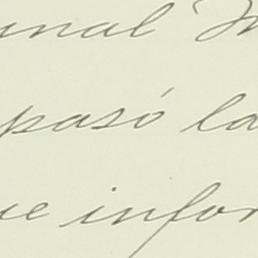 unal M
pasó la
ue infor